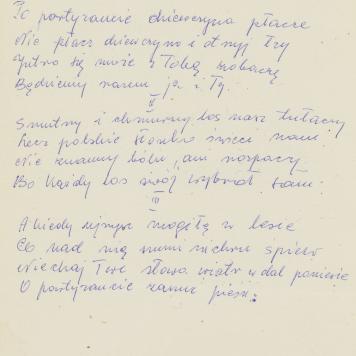 Po partyzancie dziewczyna płacze
Nie płacz dziewczyno i otrzyj łzy
Jutro się może z Tobą zobaczę
Będziemy razem ja i Ty.
II
Smutny i chmurny los nasz tułaczy
Lecz polskie słonko świeci nam
Nie znamy bólu, ani rozpaczy
Bo każdy los swój wybrał sam.
III
A kiedy ujrzysz mogiłę w lesie
Co nad nią szumi wichru śpiew
Niechaj Twe słowa wiatr w dal poniesie
O partyzancie zanuć pieśń.